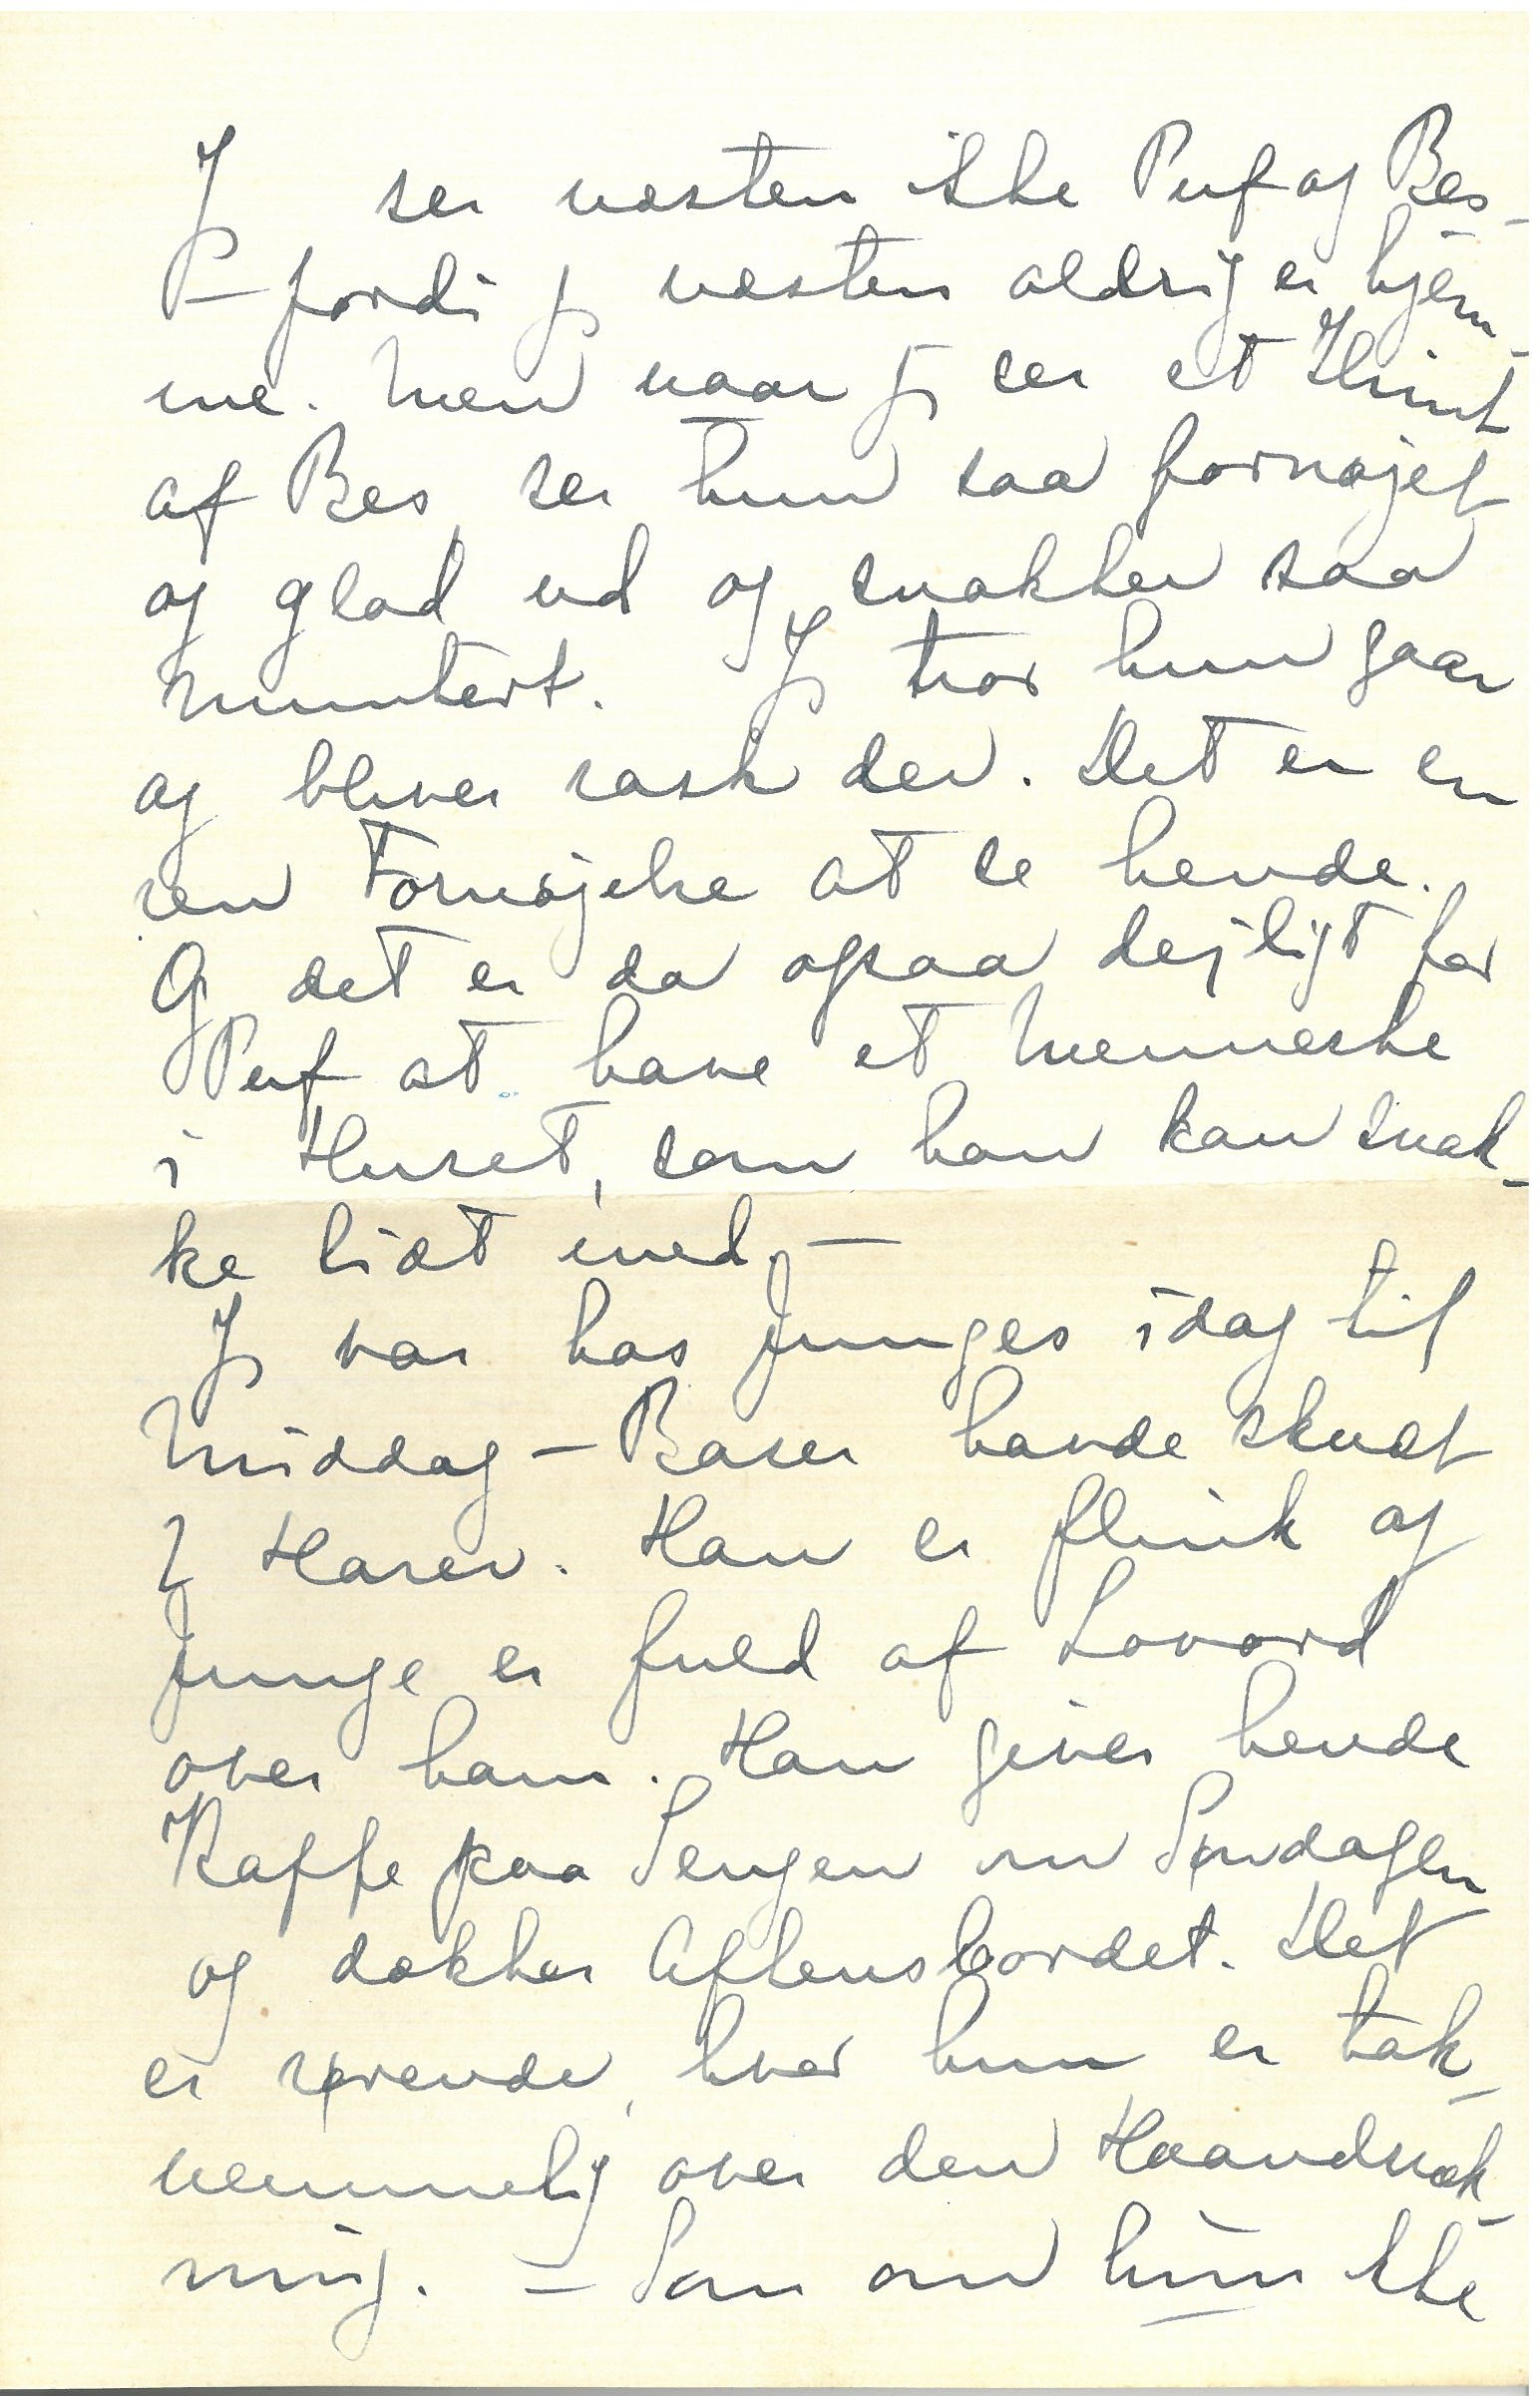 Jeg ser næsten ikke Puf og Bes -
- fordi jeg næsten aldrig er hjem-
me. Men naar jeg ser et Glimt
af Bes, ser hun saa fornøjet
og glad ud og snakker saa
muntert. Jeg tror hun gaar
og bliver rask der. Det er en
ren Fornøjelse at se hende.
Og det er da ogsaa dejligt for
Puf at have et Menneske
i Huset, som han kan snak-
ke lidt med. -
Jeg var hos Junges idag til
Middag - Baser havde skudt
2 Harer. Han er flink og
Junge er fuld af Lovord
over ham. Han giver hende
Kaffe paa Sengen om Søndagen
og dækker Aftensbordet. Det
er rørende, hvor hun er tak-
nemmelig over den Haandsræk-
ning. - Som om hun ikke